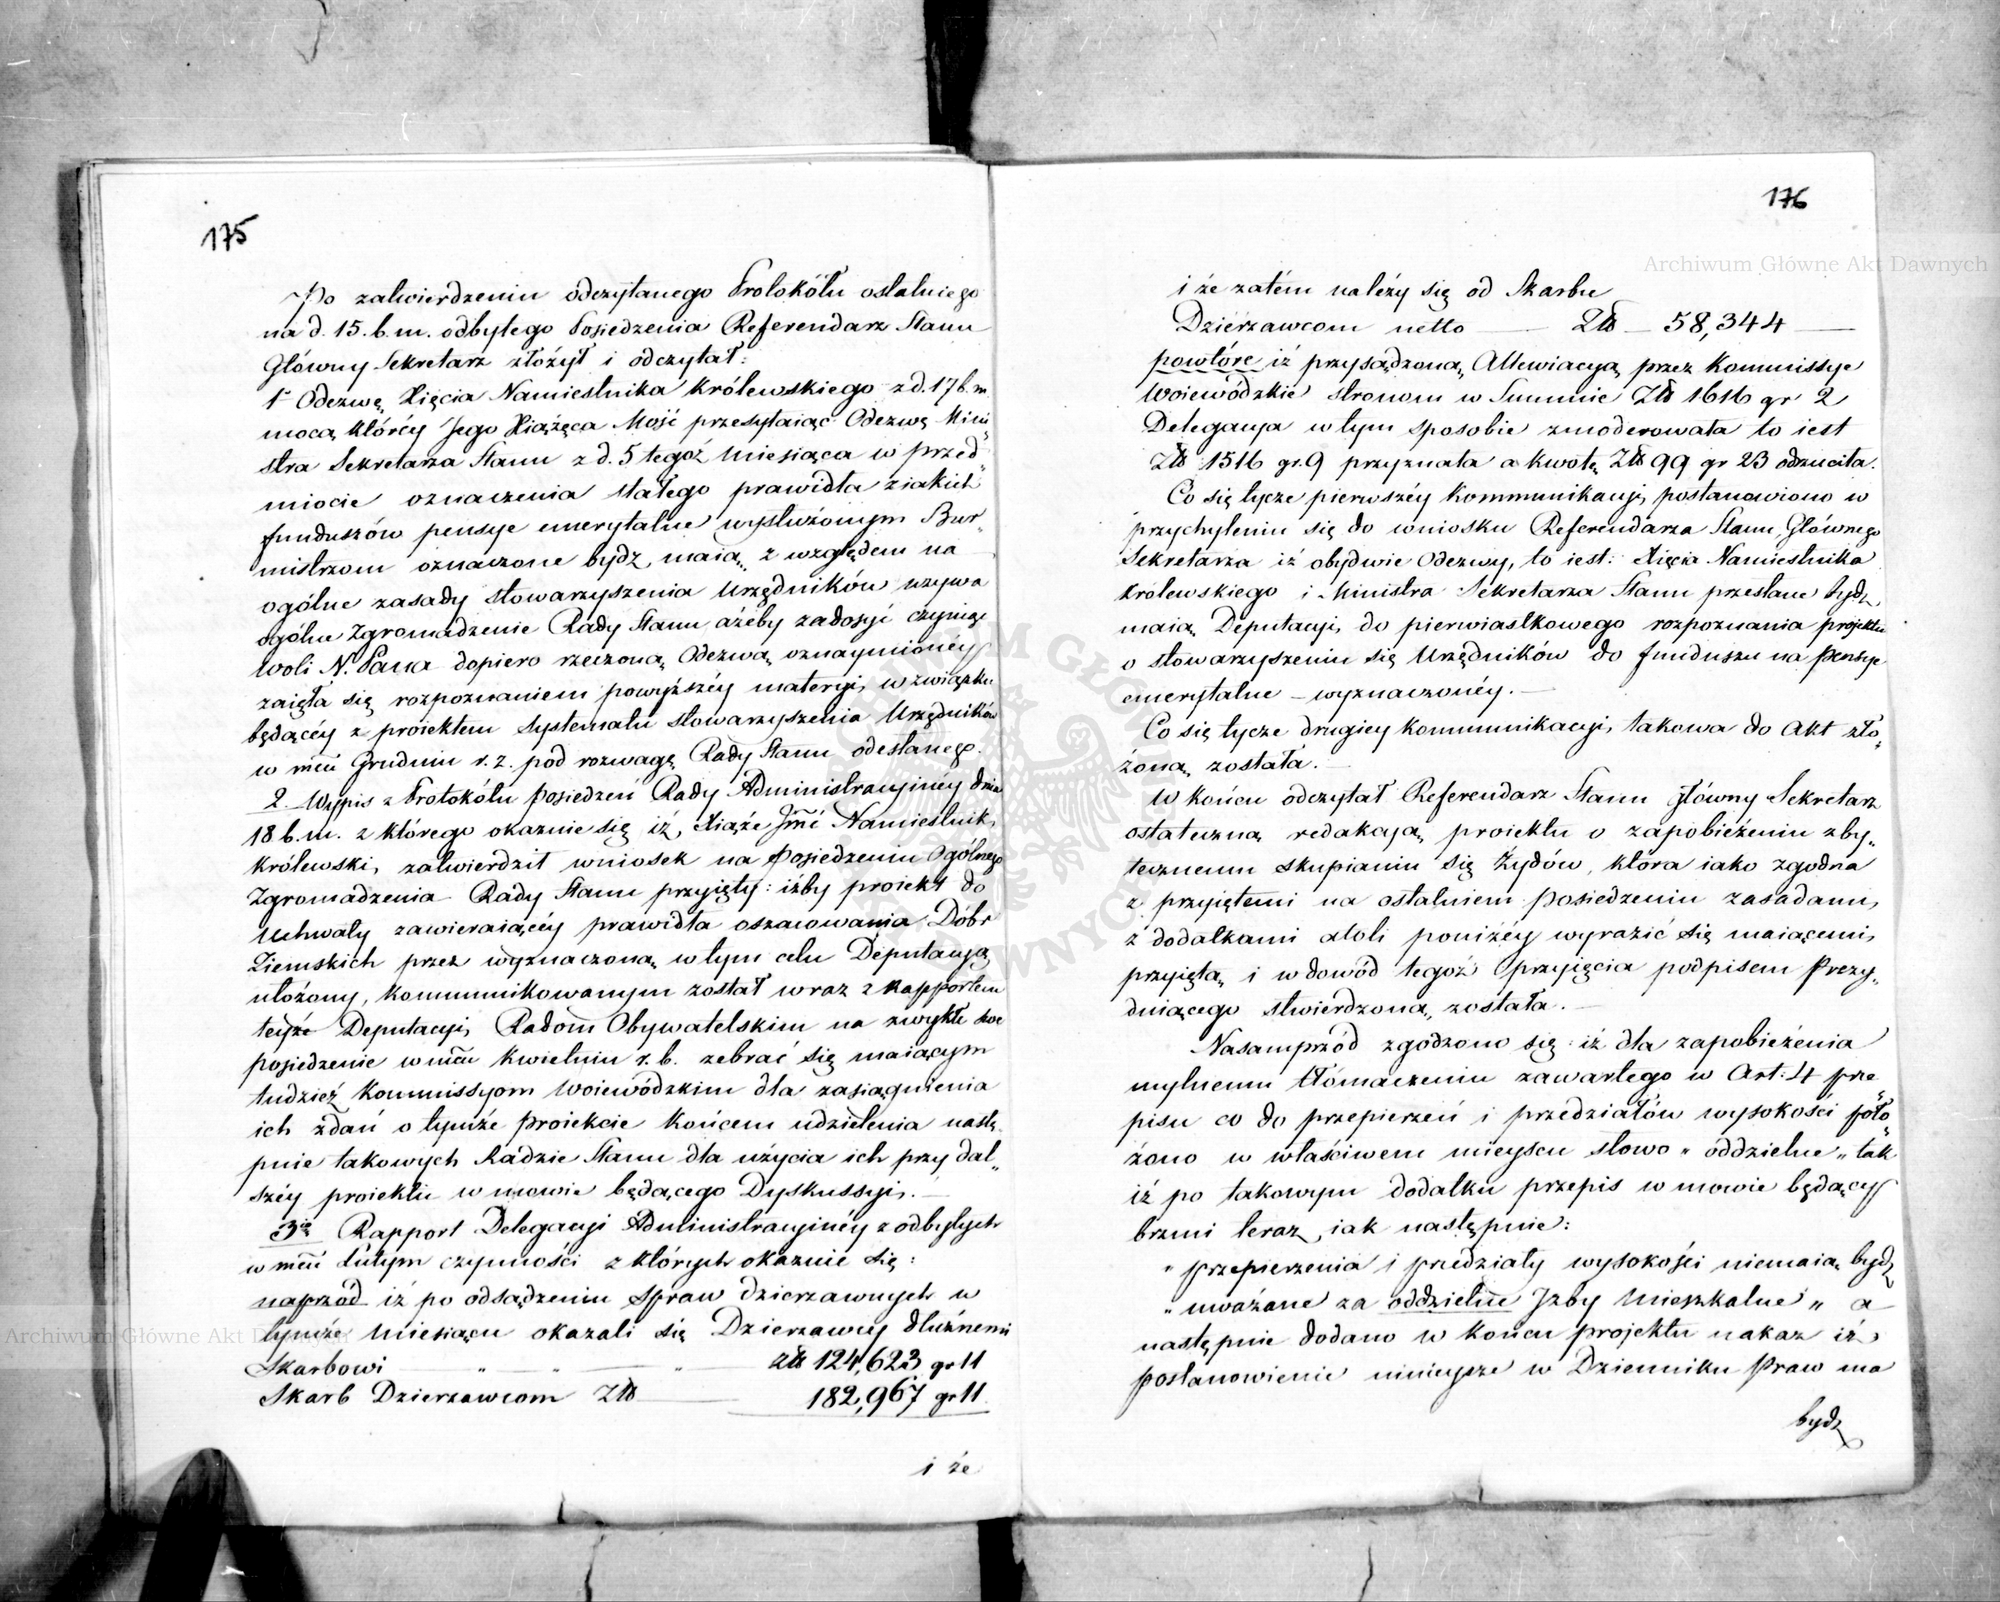 175
Po zatwierdzeniu odczytanego Protokółu ostatniego
na d. 15. b. m. odbytego Posiedzenia Referendarz Stanu
Główny Sekretarz złożył i odczytał:
1. Odezwę Xięcia Namiestnika Królewskiego z d. 17 b. m.
mocą któréy Jego Xiążęca Mość przesyłaiąc Odezwę Mini„
stra Sekretarza Stanu z d. 5 tegoż Miesiąca w przed„
miocie oznaczenia stałego prawidła z iakich
funduszów pensye emerytalne wysłużonym Bur„
mistrzom oznaczone bydź maią, z względem na
ogólne zasady stowarzyszenia Urzędników wzywa
ogólne Zgromadzenie Rady Stanu ażéby zadosyć czyniąc
Woli N. Pana dopiero rzeczoną Odezwą oznaymionéy
zaięła się rozpoznaniem powyższéy materyi, w związku
będącéy z proiektem systematu stowarzyszenia Urzędników
w mcu Grudniu r. z. pod rozwagę Rady Stanu odesłanego.
2. Wypis z Protokółu Posiedzeń Rady Administracyinéy dnia
18 b. m. z którego okazuie się iż, Xiąże Jmć Namiestnik
Królewski, zatwierdził wniosek na Posiedzeniu Ogólnego
Zgromadzenia Rady Stanu przyięty: iżby proiekt do
Uchwały zawieraiącéy prawidła oszacowania Dóbr
Ziemskich przez wyznaczoną w tym celu Deputacyą
ułożony, kommunikowanym został wraz z Rapportem
teyże Deputacyi, Radom Obywatelskim na zwykłe swe
posiedzenie w mcu Kwietniu r. b. zebrać się maiącym
tudzież Kommissyom Woiewódzkim dla zasiągnienia
ich zdań o tymże Proiekcie końcem udzielenia nastę„
pnie takowych Radzie Stanu dla użycia ich przy dal„
széy proiektu w mowie będącego Dyskussyi. —
3cie Rapport Delegacyi Administracyinéy z odbytych
w mcu Lutym czynności z których okazuie się:
naprzód iż po odsądzeniu spraw dzierzawnych w
tymże Miesiącu okazali się Dzierzawcy dłużnemi
Skarbowi — „ — „ — „ Złł 124,623 gr 11
Skarb Dzierzawcom Złł — 182,967 gr 11.
i że
176
i że zatém należy się od Skarbu
Dzierzawcom netto — Złł — 58,344 —
powtóre iż przysądzoną Allewiacyą przez Kommissye
Woiewódzkie stronom w Summie Złł 1616 gr 2
Delegacya w tym sposobie zmoderowała to iest
Złł 1516 gr. 9 przyznała a kwotę Złł 99 gr 23 odrzuciła.
Co się tycze pierwszéy kommunikacyi, postanowiono w
przychyleniu się do wniosku Referendarza Stanu Głównego
Sekretarza iż obydwie Odezwy, to iest: Xięcia Namiestnika
Królewskiego i Ministra Sekretarza Stanu przesłane bydź
maią Deputacyi, do pierwiastkowego rozpoznania projektu
o stowarzyszeniu się Urzędników do funduszu na Pensye
emerytalne — wyznaczonéy. —
Co się tycze drugiey kommunikacyi, takowa do Akt zło„
żoną została. —
W końcu odczytał Referendarz Stanu Główny Sekretarz
ostateczną redakcyą proiektu o zapobieżeniu zby„
tecznemu skupianiu się Żydów, która iako zgodna
z przyiętemi na ostatniem Posiedzeniu zasadami,
z dodatkami atoli poniżéy wyrazić się maiącemi,
przyiętą i w dowód tegoż przyięcia podpisem Prezy„
duiącego stwierdzoną została. —
Nasamprzód zgodzono się iż dla zapobieżenia
mylnemu tłómaczeniu zawartego w Art: 4 prze„
pisu co do przepierzeń i przedziałów wysokości poło„
żono w właściwem mieyscu słowo „ oddzielne „ tak
iż po takowym dodatku przepis w mowie będący
brzmi teraz, iak następnie:
„ przepierzenia i przedziały wysokości niemaią bydź
„ uważane za oddzielne Izby Mieszkalne „ a
następnie dodano w końcu projektu nakaz iż,
postanowienie ninieysze w Dzienniku Praw ma
bydź
Archiwum Główne Akt Dawnych
Archiwum Główne Akt Dawnych